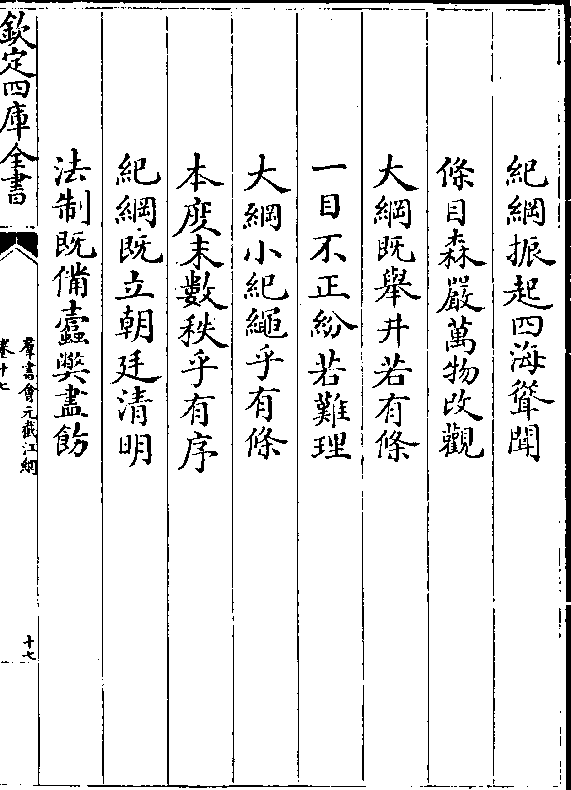 紀綱振起四海聳聞
條目森嚴萬物改觀
大綱既舉井若有條
一目不正紛若難理
大綱小紀繩乎有條
本度末數秩乎有序
紀綱既立朝廷清明
法制既備蠧弊盡飭
欽定四庫全書
羣書會元截江網
卷十七
十七